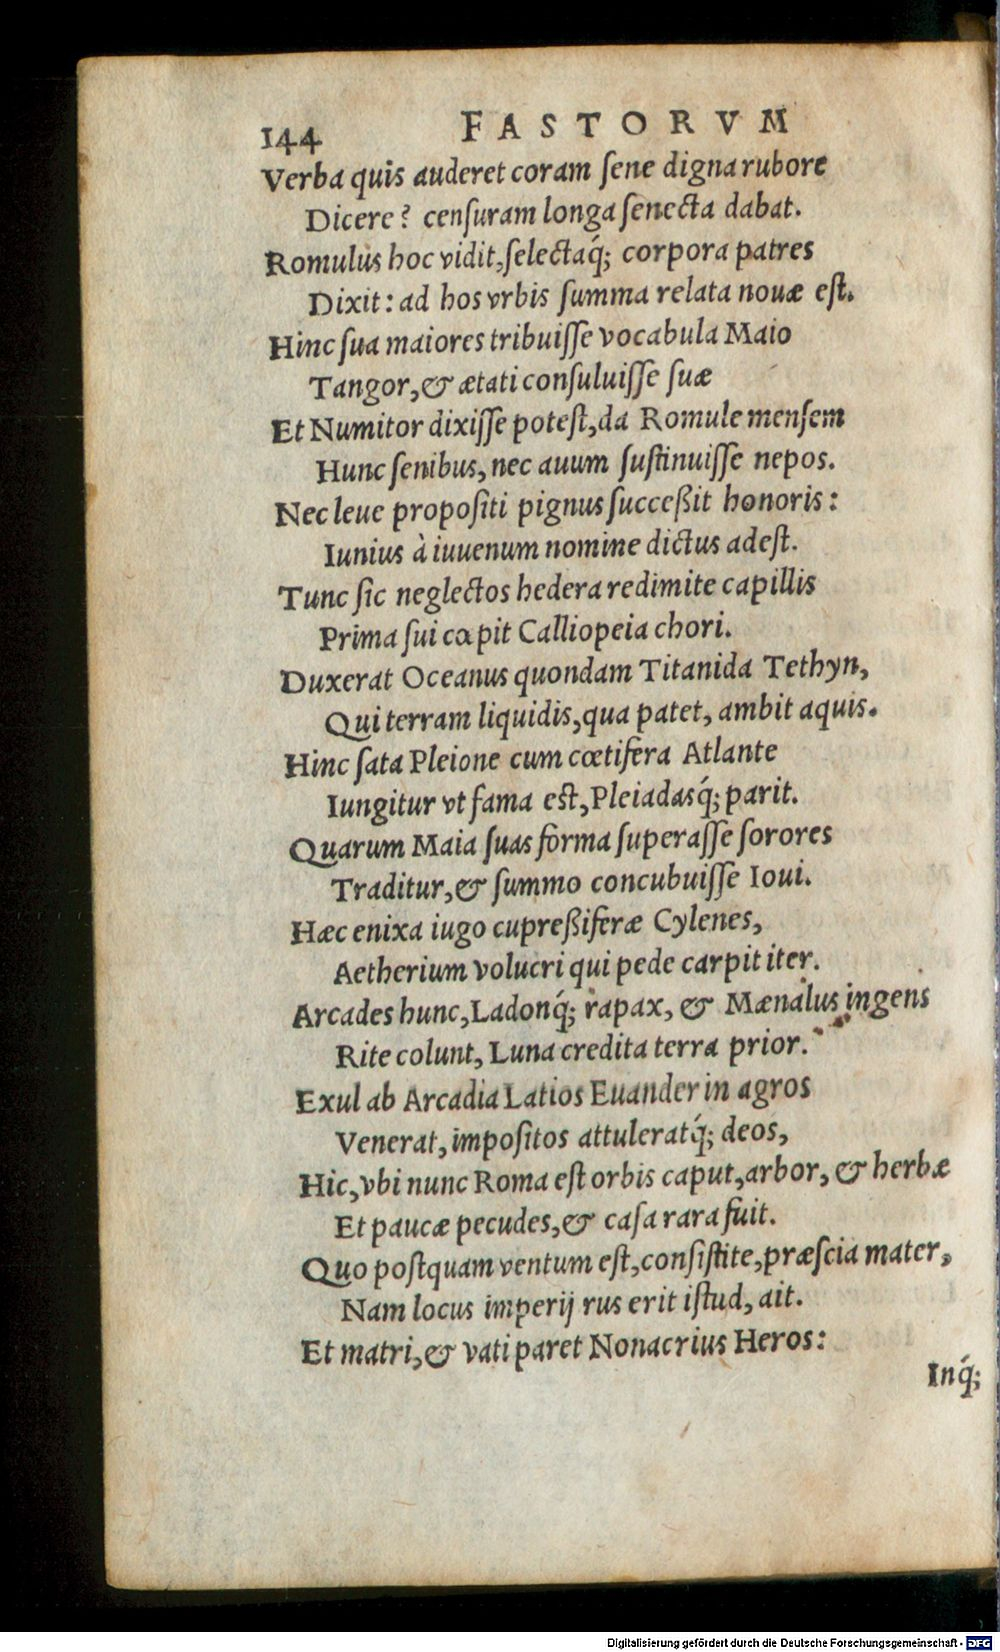 144 FASTORVM
Verba quis auderet coram ſene digna rubore
Dicere? cenſuram longa ſenecta dabat.
Romulus hoc vidit, ſelectaq́; corpora patres
Dixit: ad hos vrbis ſumma relata nouæ eſt.
Hinc ſua maiores tribuiſſe vocabula Maio
Tangor, & ætati conſuluiſſe ſuæ
Et Numitor dixiſſe poteſt, da Romule menſem
Hunc ſenibus, nec auum ſuſtinuiſſe nepos.
Nec leue propoſiti pignus ſucceßit honoris:
Iunius à iuuenum nomine dictus adeſt.
Tunc ſic neglectos hedera redimite capillis
Prima ſui cœpit Calliopeia chori.
Duxerat Oceanus quondam Titanida Tethyn,
Qui terram liquidis, qua patet, ambit aquis.
Hinc ſata Pleione cum cœtifera Atlante
Iungitur vt fama eſt, Pleiadasq́; parit.
Quarum Maia ſuas forma ſuperaſſe ſorores
Traditur, & ſummo concubuiſſe Ioui.
Hæc enixa iugo cupreßiferæ Cylenes,
Aetherium volucri qui pede carpit iter.
Arcades hunc, Ladonq́; rapax, & Mænalus ingens
Rite colunt, Luna credita terra prior.
Exul ab Arcadia Latios Euander in agros
Venerat, impoſitos attuleratq́; deos,
Hic, vbi nunc Roma eſt orbis caput, arbor, & herbæ
Et paucæ pecudes, & caſa rara fuit.
Quo poſtquam ventum eſt, conſiſtite, præſcia mater,
Nam locus imperij rus erit iſtud, ait.
Et matri, & vati paret Nonacrius Heros:
Inq́;
Digitalisierung gefördert durch die Deutsche Forschungsgemeinschaft - DFG